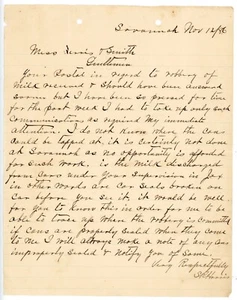 Savannah Nov 12/86
Mess Lewis & Smith
Gentlemen
Your Postal in regard to robbing of
Milk received & should have been answered
sooner but I have been so pressed for time
for the past week I had to take up only such
Communications as required my immediate
attention. I do not know where the cans
could be tapped at. it is certainly not done
at Savannah as no opportunity is afforded
for such work. is the Milk discharged
from cars under your Supervision in Jax
in other words are Car Seals broken on
Car before you see it. it would be well
for you to know this in order for us to be
able to trace up when the robbing is committed
if cans are properly sealed when they come
to me I will always make a note of any cans
improperly sealed & Notify you of same.
Very Respectfully